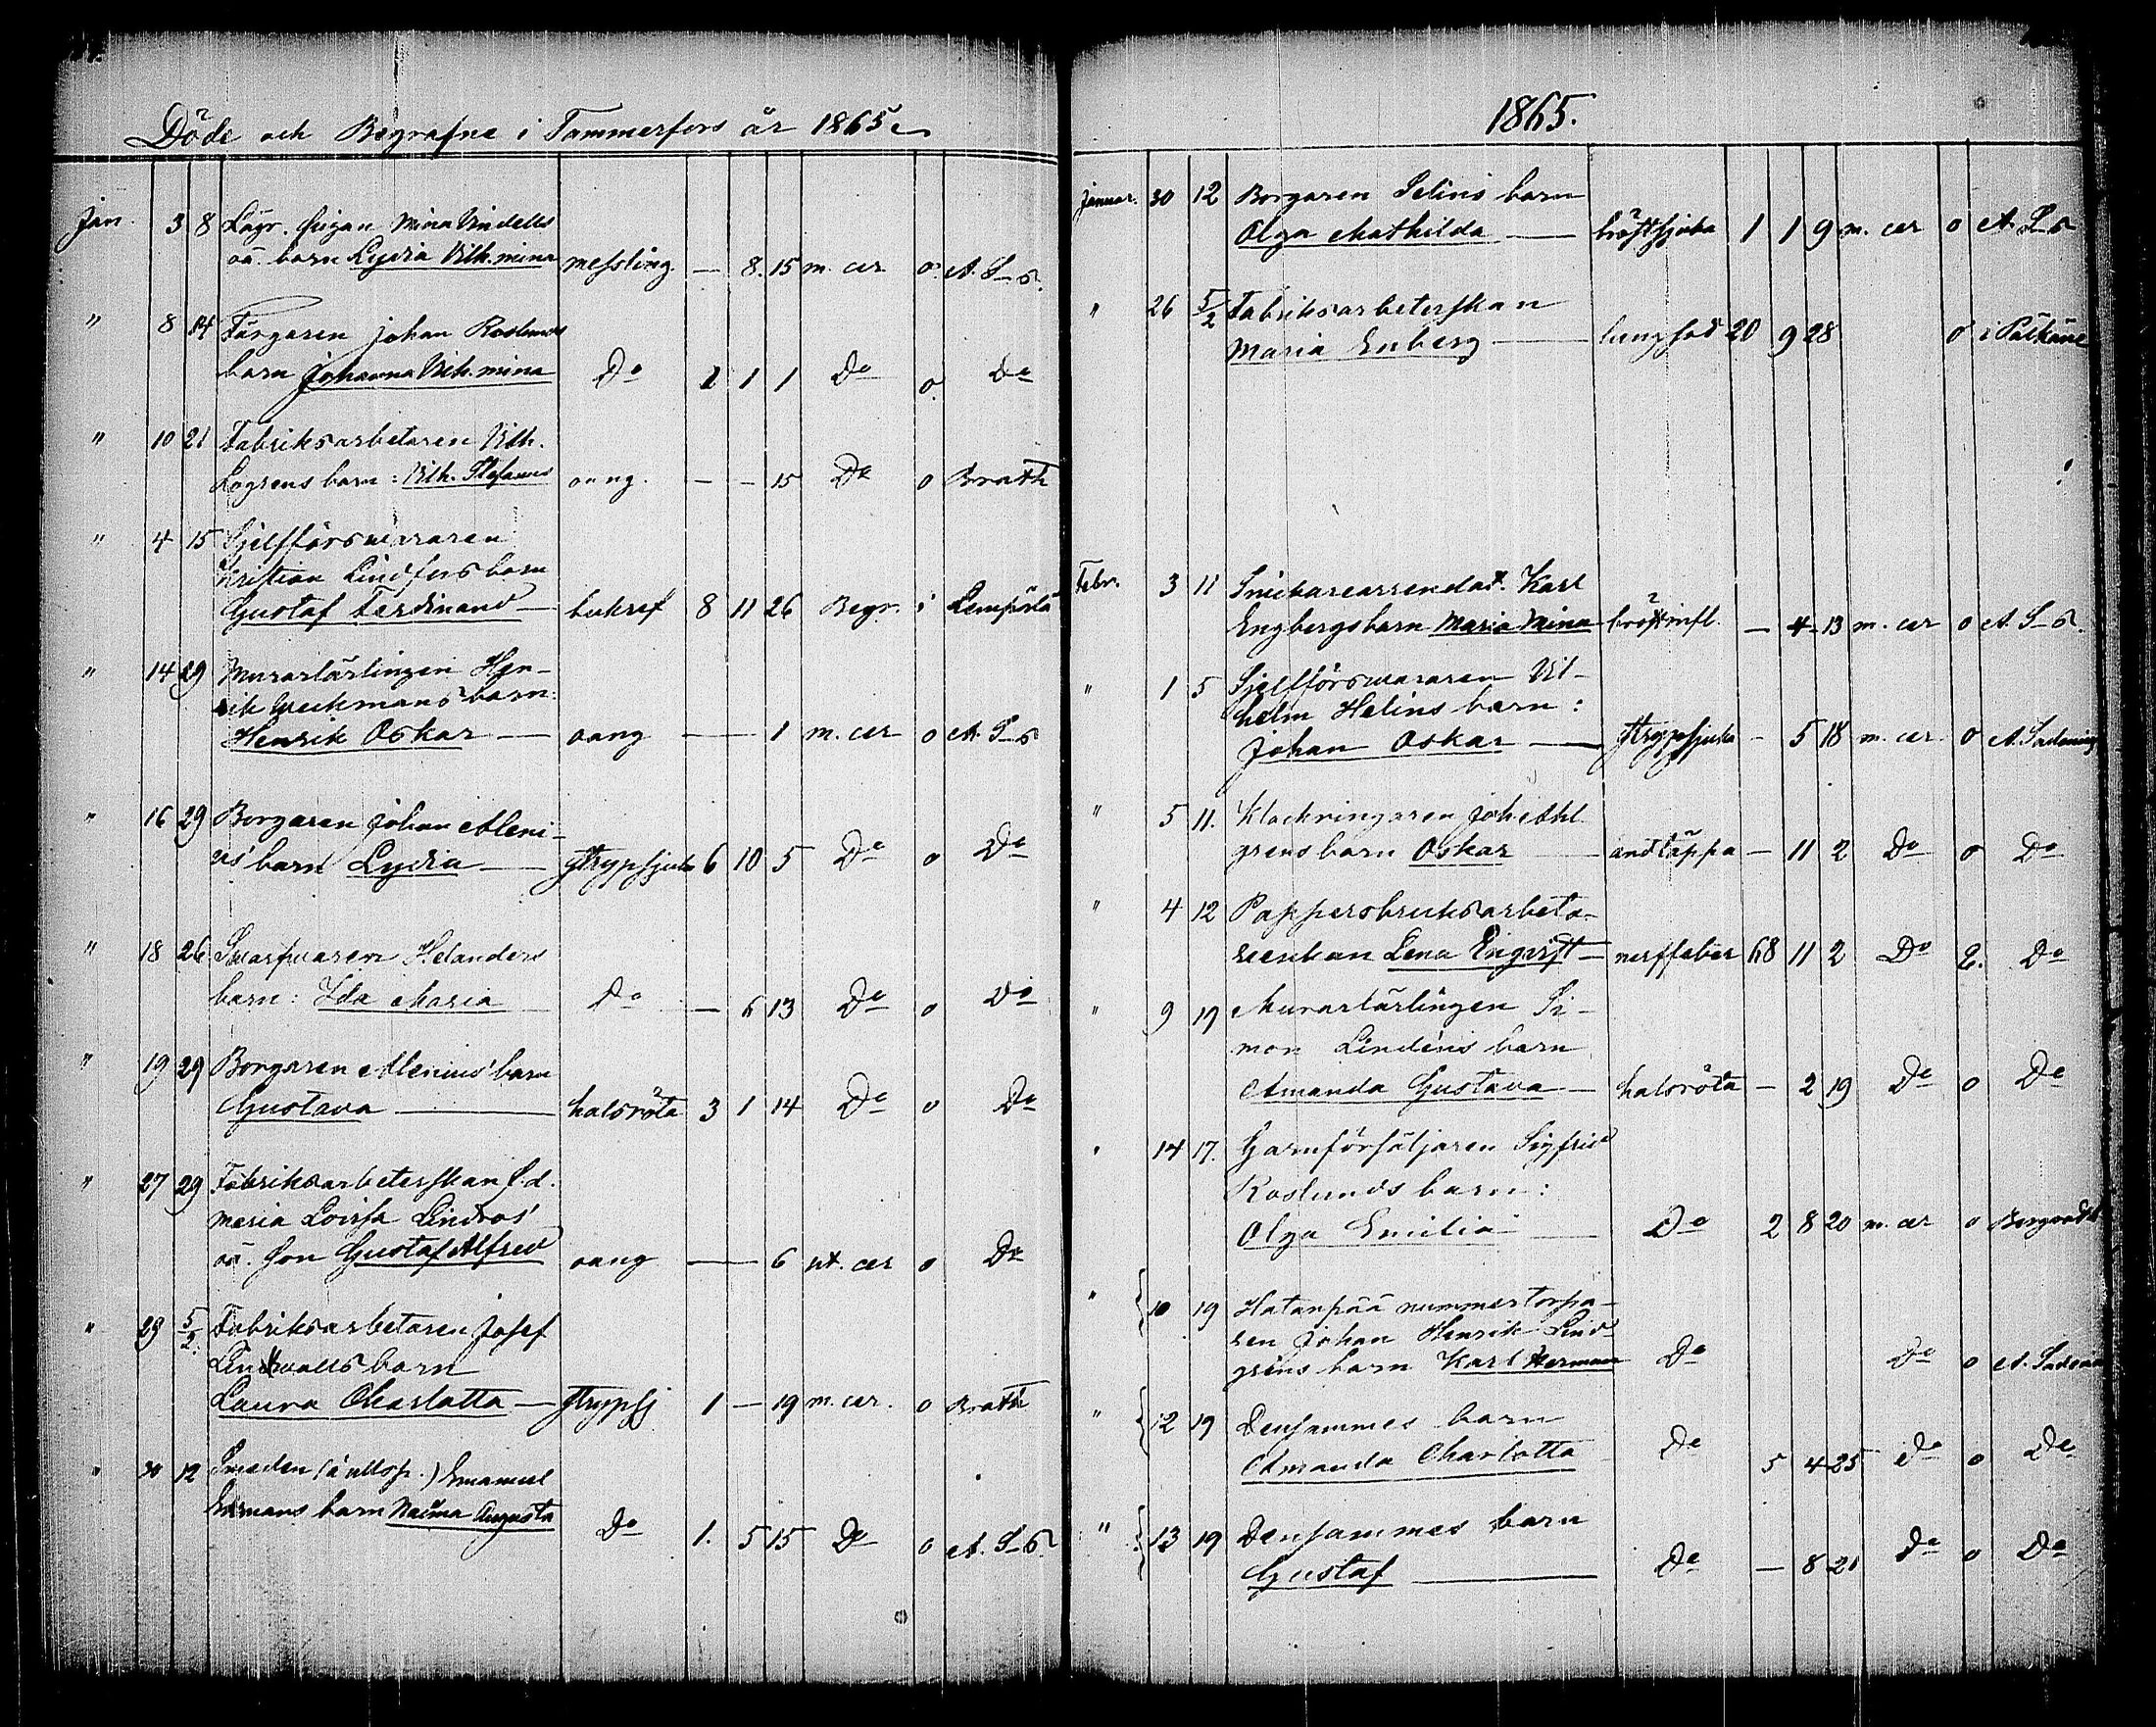 Döde och Begrafne i Tammerfors år 1865
Jan. 3 8 Lägr. pigan Mina Vindells
oä. barn Lydia Vilh.mina messling. — 8. 15 m. cer o A. S—s.
" 8 14 Färgaren Johan Roslunds
barn Johanna Vilh.mina Do 1 1 1 Do o Do
" 10 21 Fabriksarbetaren Vilh.
Logrens barn: Vilh. Stefanus oang. — — 15 Do o Brath
" 4 15 Sjelfförsvararen
Kristian Lindfors barn
Gustaf Ferdinand — bukref 8 11 26 Begr. i Lempäälä
" 14 29 Murarlärlingen Hen-
rik barn:
Henrik Oskar — oang — — 1 m. cer o A. S—s
" 16 29 Borgaren Johan Aleni-
us' barn Lydia — strypsjuka 6 10 5 Do o Do
" 18 26 Svarfvaren Helanders
barn: Ida Maria Do — 6 13 Do o Do
" 19 29 Borgaren Alenius' barn
Gustava — halsröta 3 1 14 Do o Do
" 27 29 Fabriksarbeterskan f.d.
Maria Lovisa Lindros'
oä. son Gustaf Alfred oang — — 6 ut. cer o Do
" 29 5/2. Fabriksarbetaren Josef
Lindvalls barn
Laura Charlotta — strypsj 1 — 19 m. cer. o Brath
" 30 12 Smeden Emanuel
barn Naima Augusta Do 1. 5 15 Do o A. S—s.
1865.
Januar. 30 12 Borgaren Selins barn
Olga Mathilda — bröstsjuka 1 1 9 m. cer o A. S—s
" 26 5/2 Fabriksarbeterskan
Maria Enberg — lungsot 20 9 28 o i Pälkäne
Febr. 3 11 Snickarearrendat. Karl
Engbergs barn Maria Mina bröstinfl. — 4 13 m. cer o A. S—s.
" 1 5 Sjelfförsvararen Vil-
helm Helins barn:
Johan Oskar — strypsjuka — 5 18 m. cer o
" 5 11. Klockringaren Joh. Ahl-
grens barn Oskar — andtäppa — 11 2 Do o Do
" 4 12 Pappersbruksarbeta-
reenkan Lena Engvist — nerffeber 68 11 2 Do E. Do
" 9 19 Murarlärlingen Si-
mon Lindéns barn
Amanda Gustava — halsröta — 2 19 Do o Do
" 14 17. Garnförsäljaren Sigfrid
Roslunds barn:
Olga Emilia — Do 2 8 20 m. cer o
" 10 19 Hatanpää nummertorpa-
ren Johan Henrik Lind-
gréns barn Karl Herman Do Do o
" 12 19 Densammes barn
Amanda Charlotta Do 5 4 25 Do o Do
" 13 19 Densammes barn
Gustaf — Do — 8 21 Do o Do